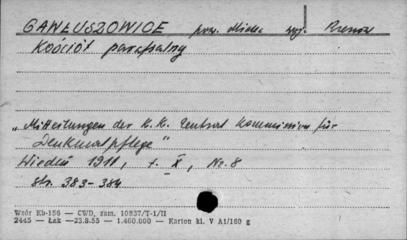 GAWŁUSZOWICE pow. Mielec woj. Rzeszów
Kościół parafialny
„Mitteilungen der K.K. Zentral Kommission für
Denkmalpflege"
Wiedeń 1911, t. X, Nr. 8
str. 383-384
Wzór Kb-156 — CWD, zam. 10837/T-1/II
2445 — Łak —23.8.55 — 1.460.000 — Karton kl. V A1/180 g